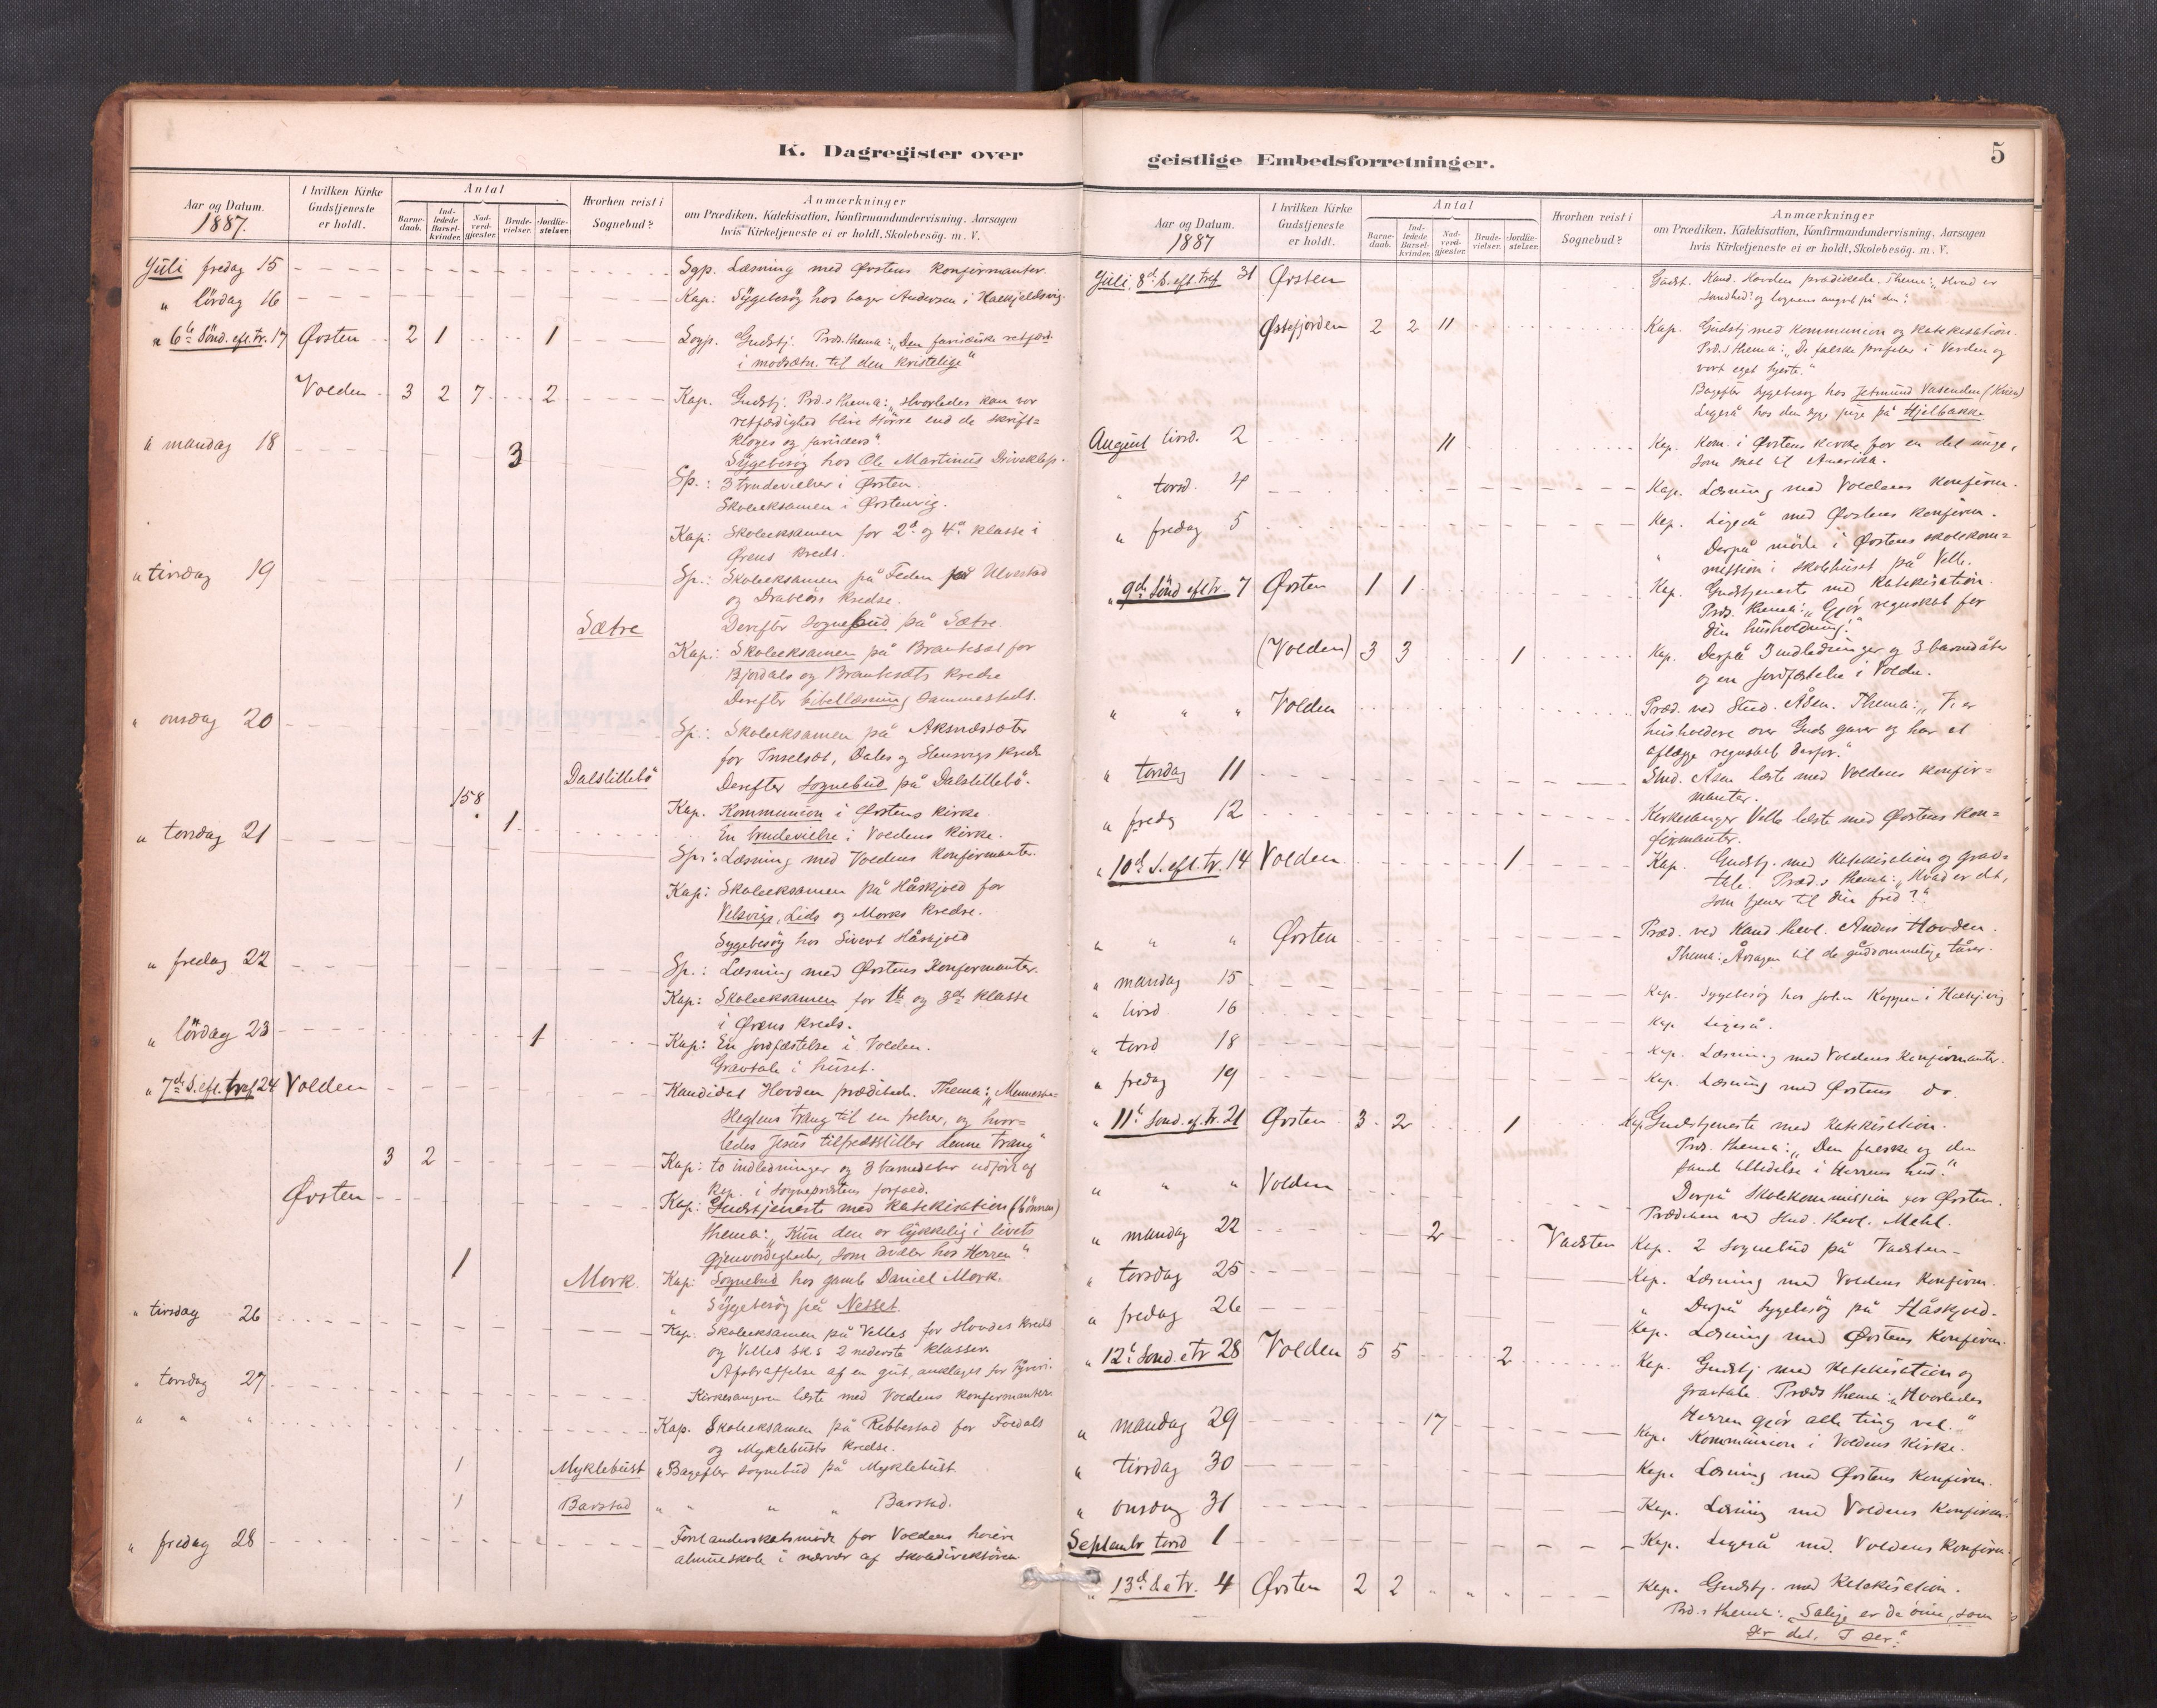 K. Dagregister over
Aar og Datum.
1887.
I hvilken Kirke
Gudstjeneste
er holdt.
Antal
Barne-
daab.
Ind-
ledede
Barsel-
kvinder.
Nad-
verd-
gjester.
Brude-
vielser.
Jordfæ-
stelser.
Hvorhen reist i
Sognebud?
Anmærkninger
om Prædiken, Katekisation, Konfirmandundervisning, Aarsagen
hvis Kirketjeneste ei er holdt, Skolebesög. m. V.
Juli fredag 15 Sgp. Læsning med Ørstens konfirmanter.
" lördag 16 Kap: Sygebesög hos bager Andersen i
" 6te Sönd. eft. tr. 17 Ørsten 2 1 1 Sogp. Gudstj. Præd. thema: "Den farisæiske retfærd.
i modsætn. til den kristelige"
Volden 3 2 7 2 Kap. Gudstj. Prd.s thema: "Hvorledes kan vor
retfærdighed blive större end de skrift=
kloges og farisæers".
Sygebesög hos Ole Martinus
" mandag 18 3 Sp.: 3 brudevielser i Ørsten.
Skoleeksamen i Ørstenvig.
Kap: Skoleeksamen for 2d og 4d klasse i
Ørens kreds.
" tirsdag 19 Sp.: Skoleeksamen på Feden for Ulvestad
og Drabløs kredse.
Sætre Derefter sognebud på Sætre.
Kap: Skoleeksamen på Brautesæt for
Bjørdals og Brautesæts kredse
Derefter bibellæsning sammesteds.
" onsdag 20 Sp.: Skoleeksamen på Aksnessæter
for Inselsæt, Dales og kreds
Dalslittebö Derefter sognebud på Dalslittebö.
158 Kap. Kommunion i Ørstens kirke.
1 En brudevielse i Voldens kirke.
" torsdag 21 Sp.: Læsning med Voldens konfirmanter.
Kap: Skoleeksamen på Håskjold for
Velsvigs, Lids og Morks kredse.
Sygebesög hos Sivert Håskjold
" fredag 22 Sp.: Læsning med Ørstens konfirmanter.
Kap: Skoleeksamen for 1te og 3d klasse
i Ørens kreds.
" lördag 23 1 Kap: En jordfæstelse i Volden.
Gravtale i huset.
" 7de S. eft. tref 24 Volden Kandidat Hovden prædikede. Thema: "Menneske=
slegtens trang til en frelser, og hvor=
ledes Jesus tilfredsstiller denne trang"
3 2 Kap: to indledninger og 3 barnedåber udfört af
Kap. i sogneprestens forfald.
Ørsten Kap: Gudstjeneste med katekisation (bönnen)
thema: "Kun den er lykkelig i livets
gjenvordigheder, som dvæler hos Herren"
1 Mork Kap: Sognebud hos gamle Daniel Mork.
" Sygebesög på Nesset.
" tirsdag 26 Kap. Skoleeksamen på Velles for Hovdes kreds
og Velles sks 2 nederste klasser.
Afstraffelse af en gut, anklaget for tyveri.
" torsdag 27 Kirkesangeren læste med Voldens konfirmanter.
" " " Kap. Skoleeksamen på Rebbestad for
og Myklebusts kredse.
1 Myklebust " Bagefter sognebud på Myklebust
1 Barstad " " " " Barstad.
" fredag 28 Forstanderskabsmöde for Voldens höiere
almueskole i nærvær af Skoledirektören.
geistlige Embedsforretninger.
5
Aar og Datum.
1887
I hvilken Kirke
Gudstjeneste
er holdt.
Antal
Barne-
daab.
Ind-
ledede
Barsel-
kvinder.
Nad-
verd-
gjester.
Brude-
vielser.
Jordfæ-
stelser.
Hvorhen reist i
Sognebud?
Anmærkninger
om Prædiken, Katekisation, Konfirmandundervisning, Aarsagen
hvis Kirketjeneste ei er holdt, Skolebesög. m. V.
Juli, 8d S. eft. tref 31 Ørsten Gudst. Kand. Hovden prædikede. Thema: "Hvad er
sandhed? og lögnens angreb på den".
Østefjorden 2 2 11 Kap. Gudstj med kommunion og katekisation.
Prd.s thema: "De falske profeter i Verden og
vort eget hjerte."
Bagefter sygebesög hos Jetmund Vasenden
Ligeså hos den syge pige på Hjelbakke
August tirsd. 2 11 Kap. Kom. i Ørstens kirke for en del unge,
som skal til Amerika.
" torsd. 4 Kap. Læsning med Voldens konfirm.
" fredag 5 Kap. Ligeså med Ørstens konfirm.
" Derpå möde i Ørstens skolekom=
mission i skolehuset på Velle.
" 9de Sönd eft tr. 7 Ørsten 1 1 Kap. Gudstjeneste med katekisation.
Prds. thema: "Gjör regnskab for
din husholdning!"
(Volden) 3 3 1 Kap. Derpå 3 indledninger og 3 barnedåber
og en jordfæstelse i Volden.
" " " Volden Præd. ved Stud. Åsen. Thema: "Vi er
husholdere over Guds gaver og har at
aflægge regnskab derfor."
" torsdag 11 Stud. Åsen læste med Voldens konfir=
manter.
" fredg 12 Kirkesanger Velle læste med Ørstens kon=
firmanter.
" 10d S. eft. tr. 14 Volden 1 Kap. Gudstj. med katekisation og grav=
tale. Præd.s thema: "Hvad er det,
som tjener til din fred?"
" " " Ørsten Præd. ved Kand theol. Anders Hovden.
Thema: Årsagen til de tårer.
" mandag 15 Kap. Sygebesög hos John Koppen i
" tirsd 16 Kap. Ligeså.
" torsd 18 Kap. Læsning med Voldens konfirmanter.
" fredag 19 Kap. Læsning med Ørstens do.
" 11te Sönd. ef. tr. 21 Ørsten 3 2 1 Kap. Gudstjeneste med katekisation.
Prds. thema: "Den falske og den
sande tilbedelse i Herrens hus."
Derpå Skolekommission for Ørsten.
" " " Volden Prædiken ved Stud. theol. Mehl.
" mandag 22 2 Vadsten Kap. 2 sognebud på Vadsten
" torsdag 25 Kap. Læsning med Voldens konfirm.
" Derpå sygebesög på Håskjold.
" fredag 26 Kap. Læsning med Ørstens konfirm.
" 12te Sönd. e tr 28 Volden 5 5 2 Kap. Gudstj med katekisation og
gravtale. Præds thema: "Hvorledes
Herren gjör alle ting vel."
" mandag 29 17 Kap. Kommunion i Voldens kirke.
" tirsdag 30 Kap. Læsning med Ørstens konfirm.
" onsdag 31 Kap. Læsning med Voldens konfirm.
September torsd 1 Kap. Ligeså med Voldens konfirm.
" 13d S. e tr. 4 Ørsten 2 2 Kap. Gudstj. med katekisation.
Prd.s thema: Salige er de öine, som
ser det, I ser."